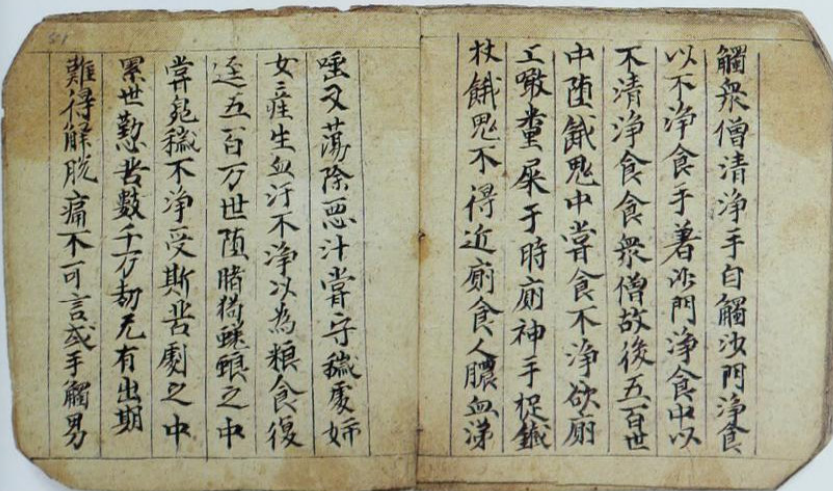 觸衆僧清淨手自觸沙門淨食
以不淨食手著沙門淨食中以
不清淨食食衆僧故後五百世
中堕餓鬼中嘗食不淨欲廁
上噉糞屎于時廁神手捉鐵
杖餓鬼不得近廁食人膿血涕
唾又蕩除惡汁嘗守穢處婦
女産生血汙不淨以為粮食復
逕五百万世堕猪狗蜣蜋之中
嘗兔穢不淨受斯苦劇之中
累世懃苦數千万劫无有出期
難得解脱痛不可言或手觸男